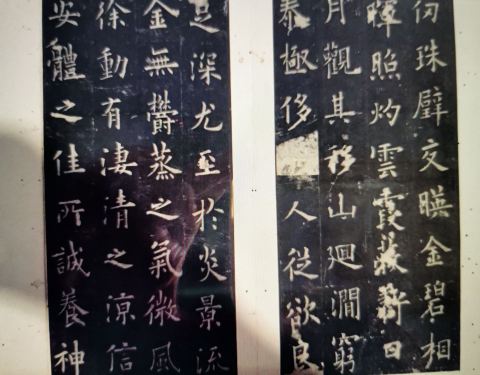 仞珠壁交暎金碧相
暉照灼雲霞蔽虧日
月觀其移山廻澗窮
泰極侈人從欲良
足深尤至於炎景流
金無欝蒸之氣微風
徐動有淒清之涼信
安體之佳所誠養神